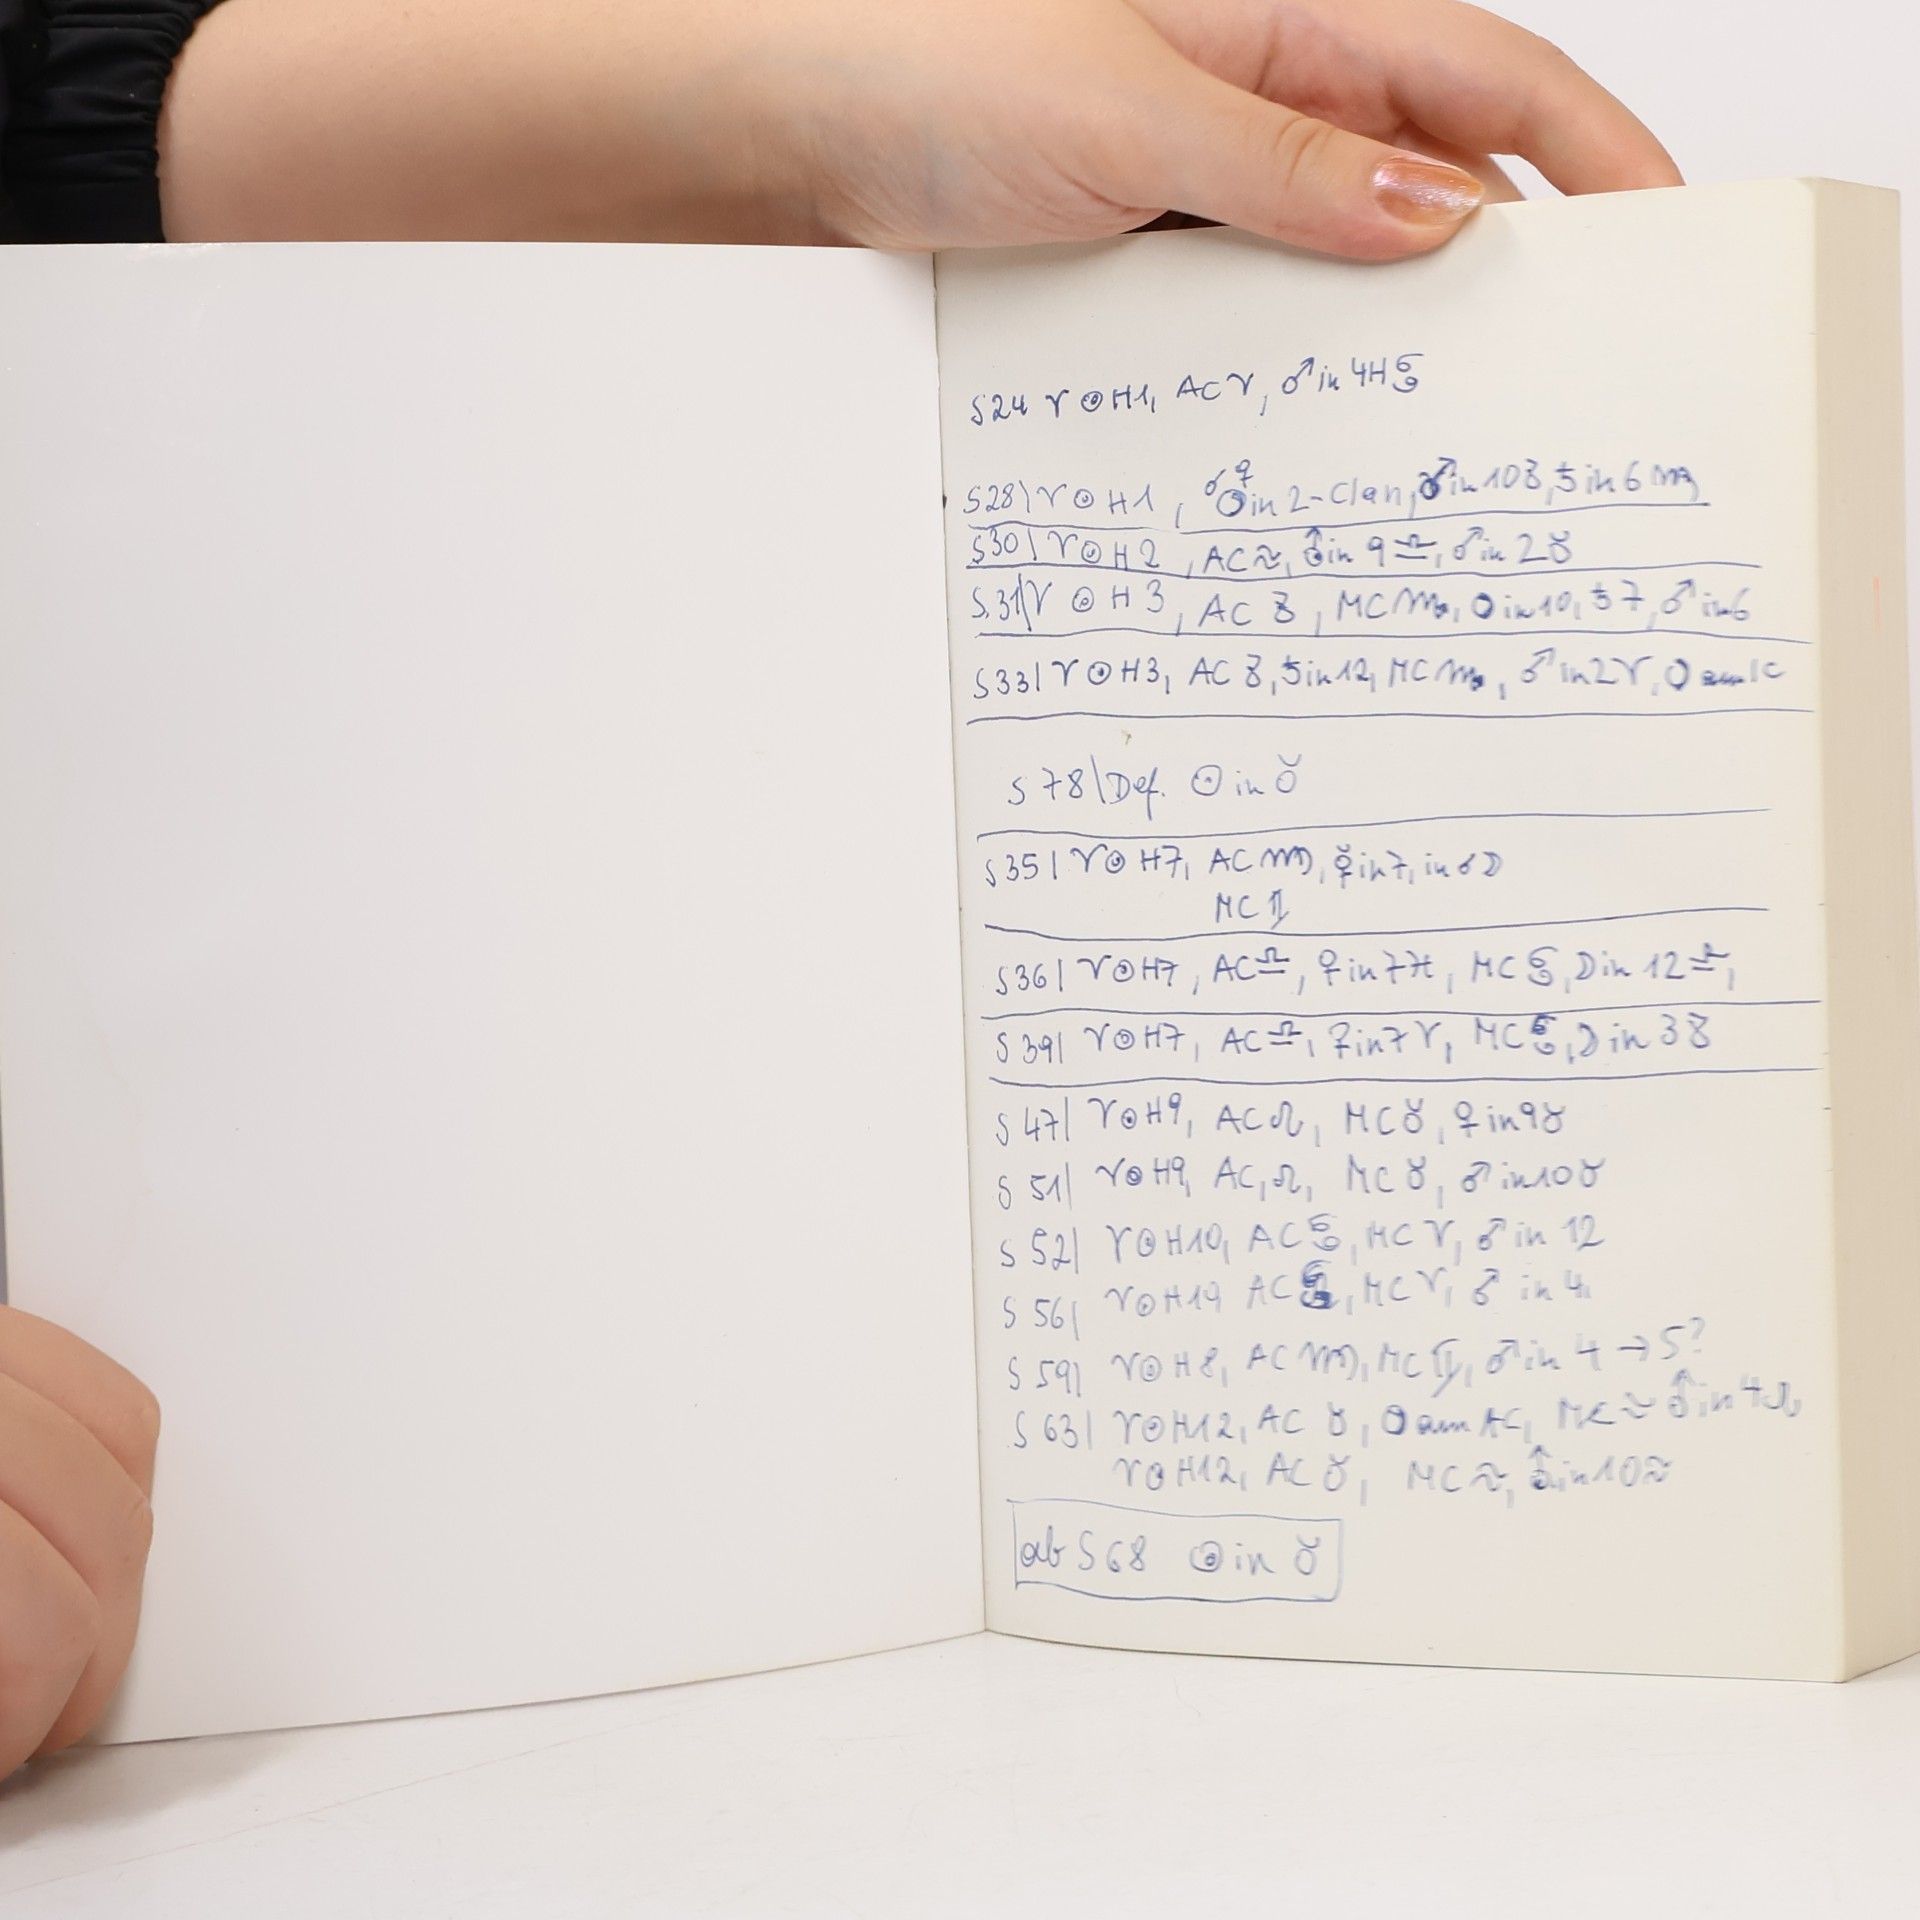 S24 ♈ ☉ H1, AC ♈, ♂ in 4H ♋
S28| ♈ ☉ H1, ☌ ♀ in 2-Clan, ♂ in 10 ♑, ♄ in 6 ♍
S30| ♈ ☉ H2, AC ♒, ⛢ in 9 ♎, ♂ in 2 ♉
S.31| ♈ ☉ H3, AC ♑, MC ♏, in 10, ♄ 7, ♂ in 6
S33| ♈ ☉ H3, AC ♑, ♄ in 12, MC ♏, ♂ in 2 ♈, am IC
S 78| Def. ☉ in ♉
S 35| ♈ ☉ H7, AC ♍, ☿ in 7, in ☌ ☽
MC ♊
S36| ♈ ☉ H7, AC ♎, ♀ in 7 ♓, MC ♋, ☽ in 12 ♎,
S 39| ♈ ☉ H7, AC ♎, ♀ in 7 ♈, MC ♋, ☽ in 3 ♑
S 47| ♈ ☉ H9, AC ♌, MC ♉, ♀ in 9 ♉
S 51| ♈ ☉ H9, AC, ♌, MC ♉, ♂ in 10 ♉
S 52| ♈ ☉ H10, AC ♋, MC ♈, ♂ in 12
S 56| ♈ ☉ H10 AC, MC ♈, ♂ in 4,
S 59| ♈ ☉ H8, AC ♍, MC ♊, ♂ in 4 → 5?
S 63| ♈ ☉ H12, AC ♉, am AC, MC ♒ ⛢ in 4 ♌
♈ ☉ H12, AC ♉, MC ♒, ⛢ in 10 ♒
ab S 68 ☉ in ♉